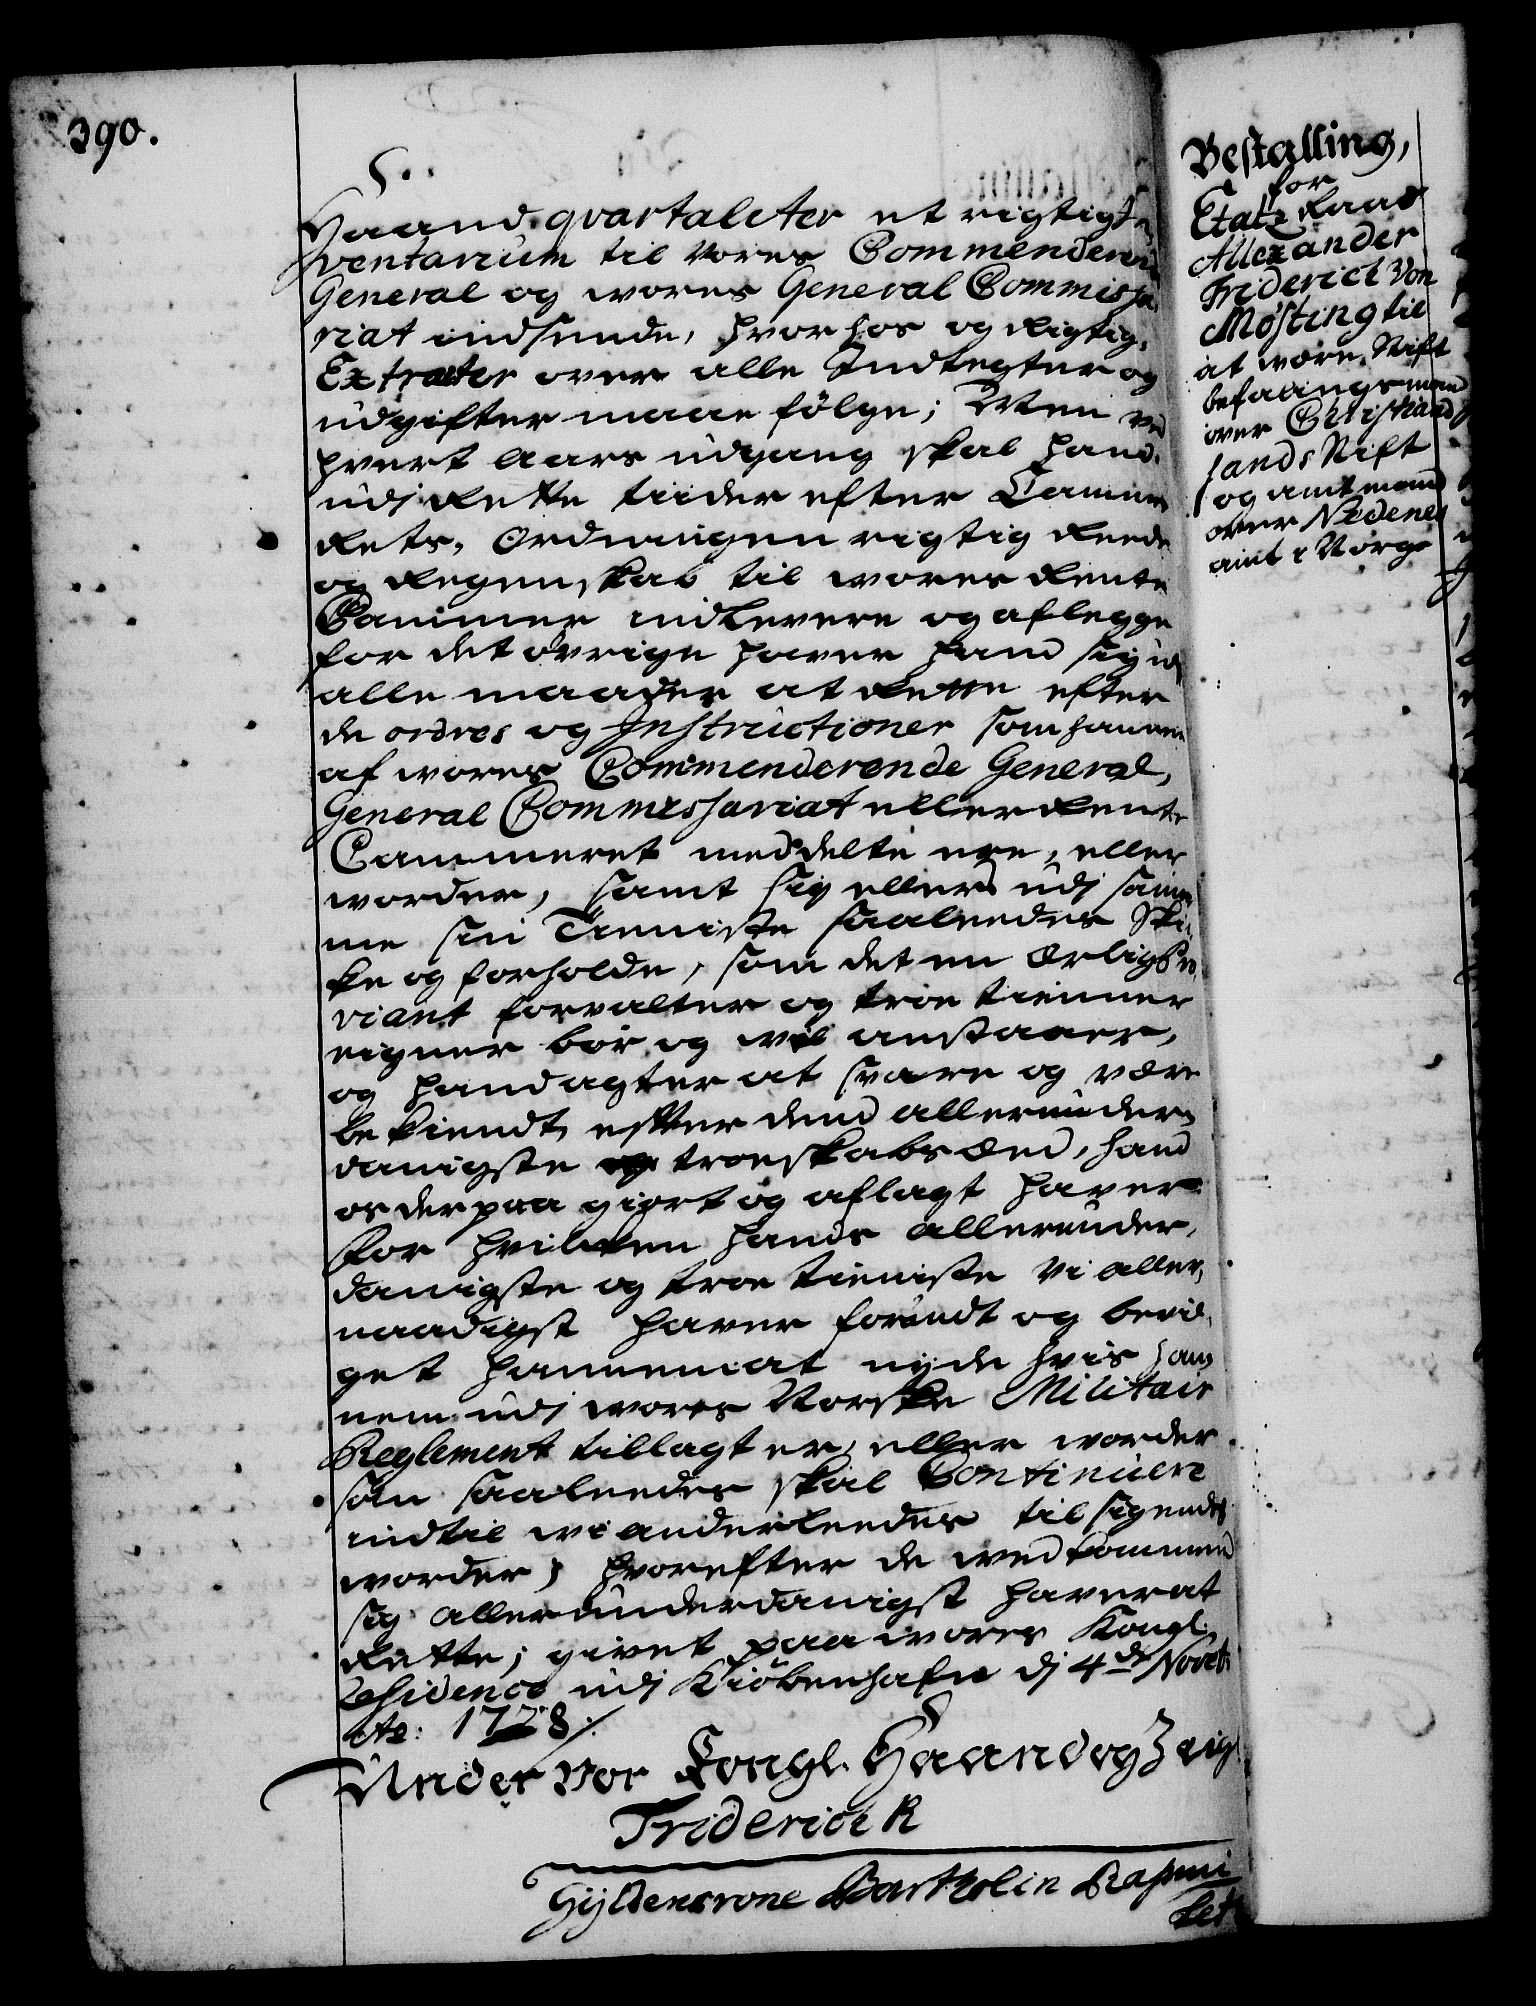 390.
Haand qvartaliter et rigtigt
Inventarium til vores Commenderende
General og wores General Commissa,
riat indsende, hvorhos og Rigtig,
Extracter over alle Indtegter og
udgifter maae følge; Men ved
hvert Aars udgang skal hand
udj Rette tiider efter Camme
Rets, Ordningen rigtig Reede
og Regenskab til wores Rente
Cammer indlevere og aflegge
for det øvrige haver hand sig udj
alle maader at Rette efter
de ordres og Instructioner som hannem
af wores Commenderende General,
General Commissariat eller Rente
Cammeret meddelte ere, eller
worder, samt sig ellers udj sam
me sin Tieniste saaleedes Ski,
ke og forholde, som det en Ærlig Pro,
viant forvalter og troe tienner
eigner bør og wel anstaaer,
og hand agter at svare og være
bekiendt, efter dend allerunder,
danigste troeskabs Æed, hand
os derpaa giort og aflagt haver
for hvilken hands allerunder,
danigste og troe tieniste Vi aller,
naadigst haver forundt og bevil,
get hannem at nyde hvis han
nem udj wores Norske Militair
Reglement tillagt er, eller worder
som saaleedes skal Continuere
indtil wi anderleedes tilsigendes
worder; hvorefter de wedkommend
sig allerunderdanigst haver at
Rette; givet paa wores Kongl.
Residence udj Kiöbenhafn dj 4de Novbr:
Ao: 1728 ./.
Under Vor Kongl. Haand og Zeigl
Friderich R
Gyldencrone Bartholin
Bestalling,
for
Etatz Raad
Allexander
Friderich Von
Møsting til
at være Stift
befalingsmand
over Christiand
sands Stift
og amtmand
over Nedenes
amt i Norge